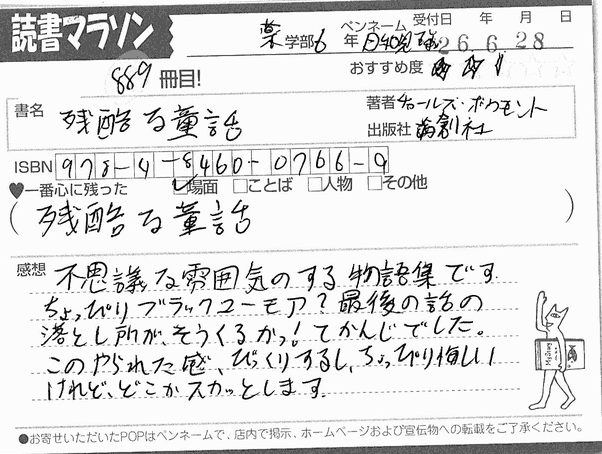 読書マラソン
薬学部6年 ペンネーム 受付日 年 月 日
26.6.28
889冊目!
おすすめ度 ★★
書名 残酷な童話
著者 チャールズ・ボウモント
出版社 論創社
ISBN 978-4-8460-0766-9
♥一番心に残った ☑場面 □ことば □人物 □その他
(残酷な童話)
感想 不思議な雰囲気のする物語集です
ちょっぴりブラックユーモア?最後の話の
落とし所が、そうくるかっ!てかんじでした。
このやられた感、びっくりするし、ちょっぴり悔しい
けれど、どこかスカッとします。
●お寄せいただいたPOPはペンネームで、店内で掲示、ホームページおよび宣伝物への転載をご了承ください。